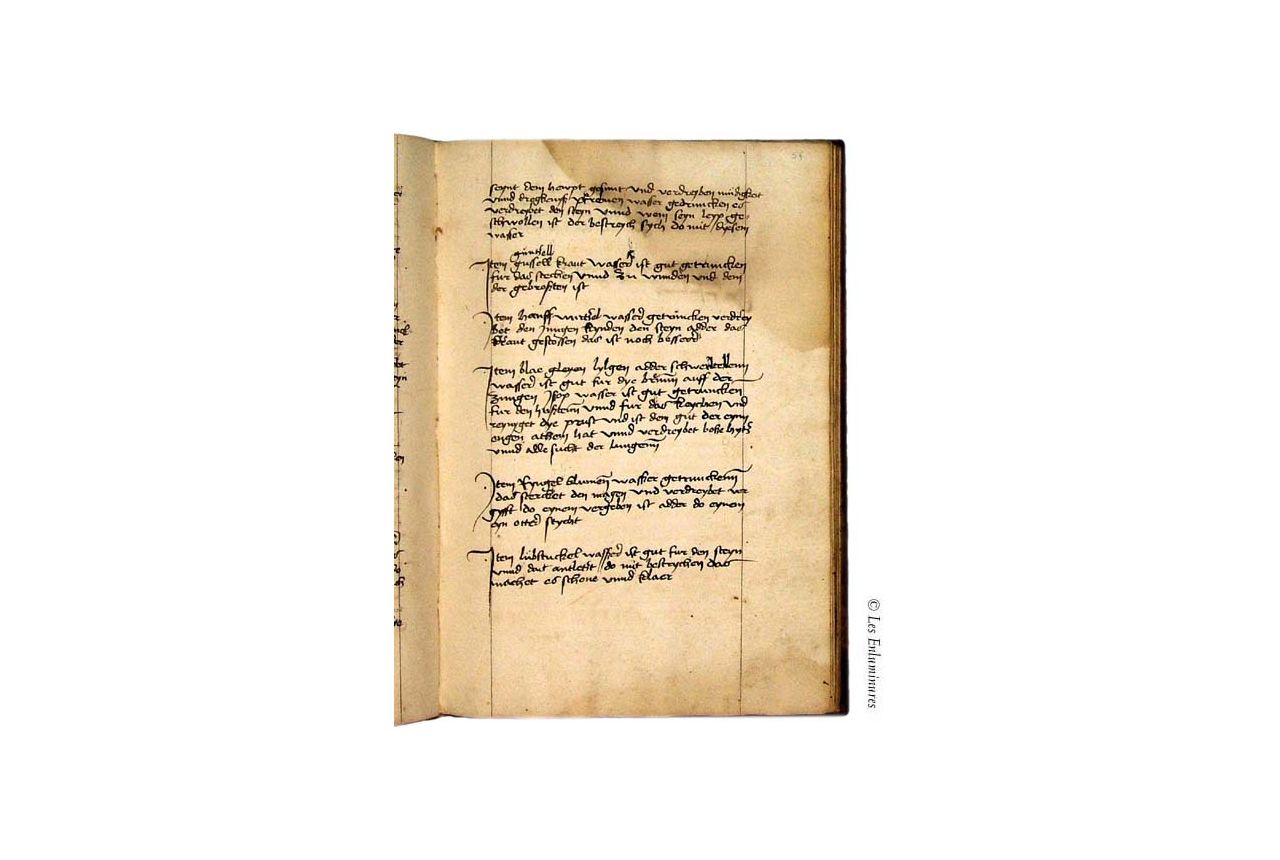 seynt dem hewpt gesunt vnd verdreyben müdigkeit
vnnd pfrimen wasser gedruncken es
verdreybet den steyn vnnd wem seyn leyp ge-
schwollen ist der bestreych sych do mit dyesem
wasser
günsell
Item gunsell kraut wasser ist gut getruncken
fur das stechen vnnd zu wunden vnd dem
der gebrochen ist
Item hanff wurtzel wasser getruncken verdrey
bet den jungen kynden den steyn adder das
kraut gestossen das ist noch besserr
Item blae gleyen lylgen adder schwertellenn
wasser ist gut fur dye breünn auff der
zungen Jsop wasser ist gut getruncken
fur den husten vnnd fur das keychen vnd
reyniget dye prust vnd ist dem gut der eyn
engen athem hat vnnd verdreybet boße hytz
vnnd alle sucht der lungenn
Item Ryngel blumen wasser getrunckenn
das stercket den magen vnd verdreybet ver
gyfft do eynem vergeben ist adder do eynem
eyn otter stycht
Item lübstuckel wasser ist gut fur den steyn
vnnd das antletzt do mit bestrychen das
machet es schone vnnd klaer
© Les Enluminures